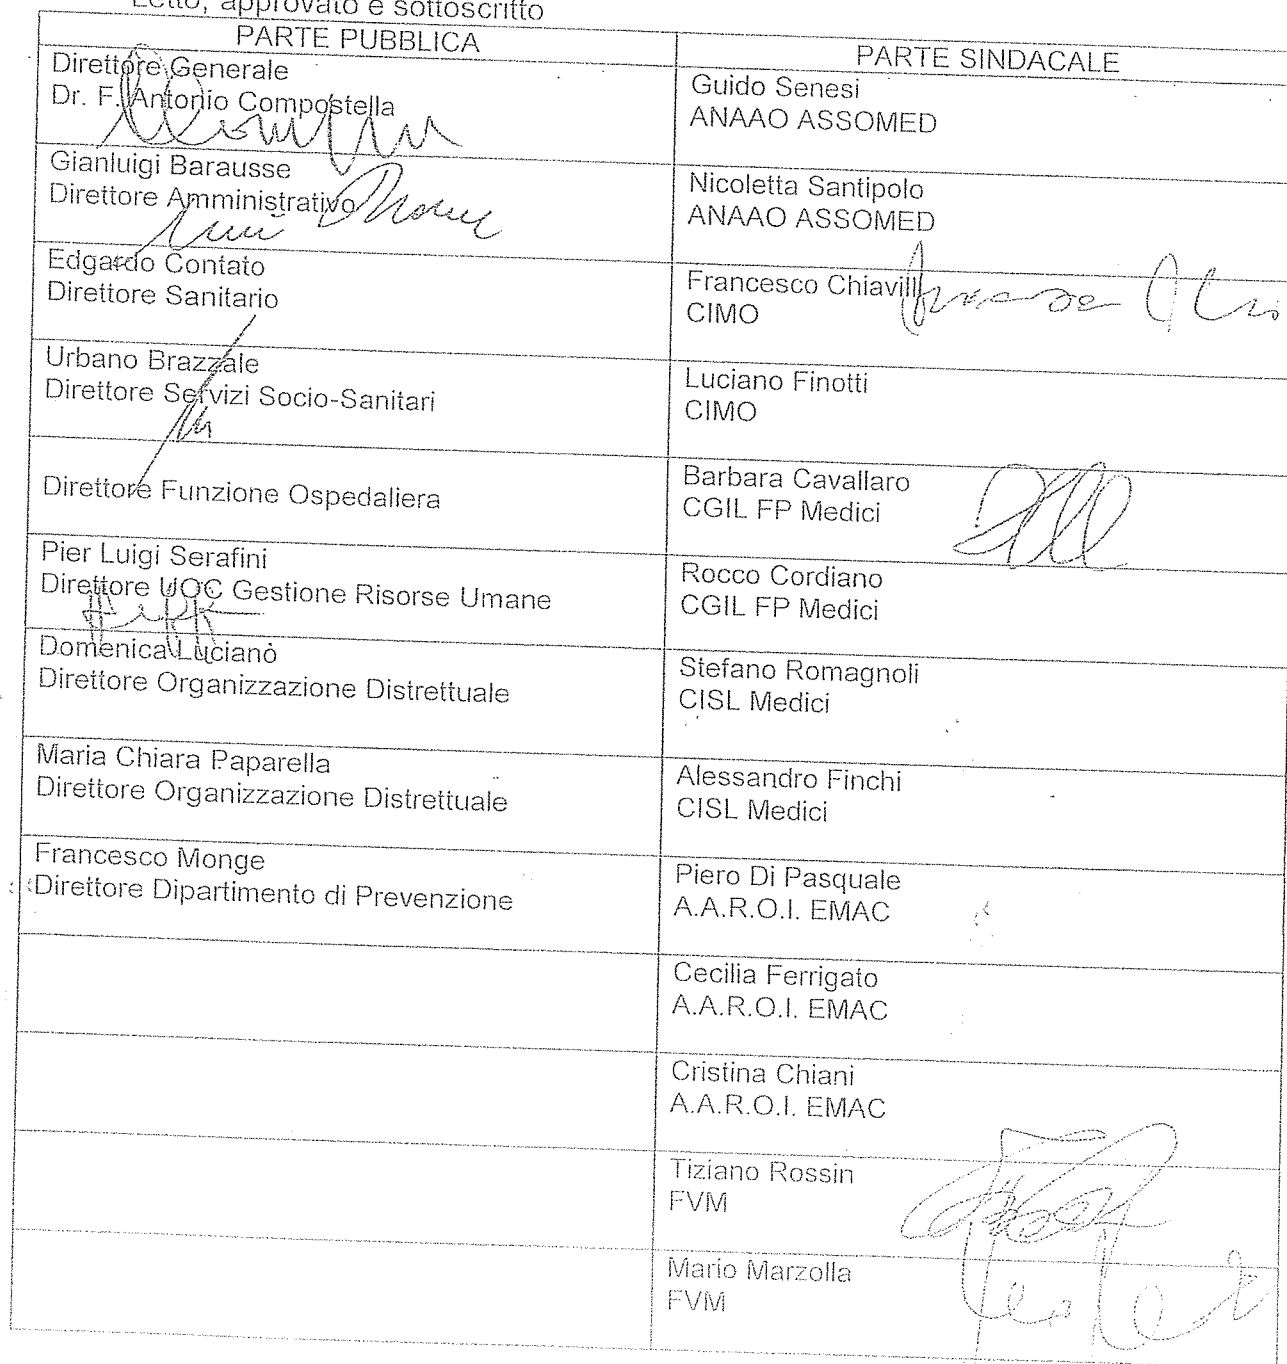 Letto, approvato e sottoscritto
PARTE PUBBLICA
PARTE SINDACALE
Direttore Generale
Dr. F. Antonio Compostella
Guido Senesi
ANAAO ASSOMED
Gianluigi Barausse
Direttore Amministrativo
Nicoletta Santipolo
ANAAO ASSOMED
Edgardo Contato
Direttore Sanitario
Francesco Chiavilli
CIMO
Urbano Brazzale
Direttore Servizi Socio-Sanitari
Luciano Finotti
CIMO
Direttore Funzione Ospedaliera
Barbara Cavallaro
CGIL FP Medici
Pier Luigi Serafini
Direttore UOC Gestione Risorse Umane
Rocco Cordiano
CGIL FP Medici
Domenica Lucianò
Direttore Organizzazione Distrettuale
Stefano Romagnoli
CISL Medici
Maria Chiara Paparella
Direttore Organizzazione Distrettuale
Alessandro Finchi
CISL Medici
Francesco Monge
Direttore Dipartimento di Prevenzione
Piero Di Pasquale
A.A.R.O.I. EMAC
Cecilia Ferrigato
A.A.R.O.I. EMAC
Cristina Chiani
A.A.R.O.I. EMAC
Tiziano Rossin
FVM
Mario Marzolla
FVM